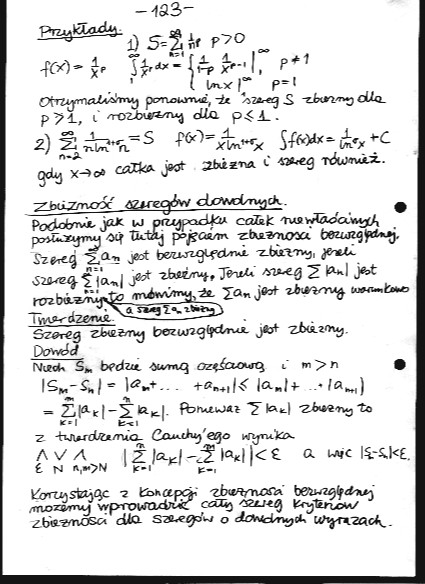 —123—
Przykłady.
1) S=∑_{n=1}^{∞} 1/n^p p>0
f(x)= 1/x^p ∫_1^∞ 1/x^p dx = { 1/(1-p) 1/x^{p-1} |_1^∞, p≠1
ln x |_1^∞, p=1
Otrzymaliśmy ponownie, że szereg S zbieżny dla
p>1, i rozbieżny dla p≤1.
2) ∑_{n=2}^{∞} 1/(n ln^{1+σ} n) = S f(x)= 1/(x ln^{1+σ} x) ∫f(x)dx= 1/ln^σ x + C
gdy x→∞ całka jest zbieżna i szereg również.
Zbieżność szeregów dowolnych.
Podobnie jak w przypadku całek niewłaściwych
posłużymy się tutaj pojęciem zbieżności bezwzględnej.
Szereg ∑_{n=1}^{∞} a_n jest bezwzględnie zbieżny, jeżeli
szereg ∑_{n=1}^{∞} |a_n| jest zbieżny. Jeżeli szereg ∑|a_n| jest
rozbieżny, to mówimy, że ∑a_n jest zbieżny warunkowo
a szereg ∑a_n zbieżny
Twierdzenie.
Szereg zbieżny bezwzględnie jest zbieżny.
Dowód
Niech S_m będzie sumą częściową i m>n
|S_m-S_n| = |a_m+... +a_{n+1}| ≤ |a_m|+...+|a_{n+1}|
= ∑_{k=1}^{m}|a_k|-∑_{k=1}^{n}|a_k|. Ponieważ ∑|a_k| zbieżny to
z twierdzenia Cauchy'ego wynika
∧_ε ∨_N ∧_{n,m>N} |∑_{k=1}^{n}|a_k|-∑_{k=1}^{m}|a_k||<ε a więc |S-S_n|<ε.
Korzystając z koncepcji zbieżności bezwzględnej
możemy wprowadzić cały szereg kryteriów
zbieżności dla szeregów o dowolnych wyrazach.